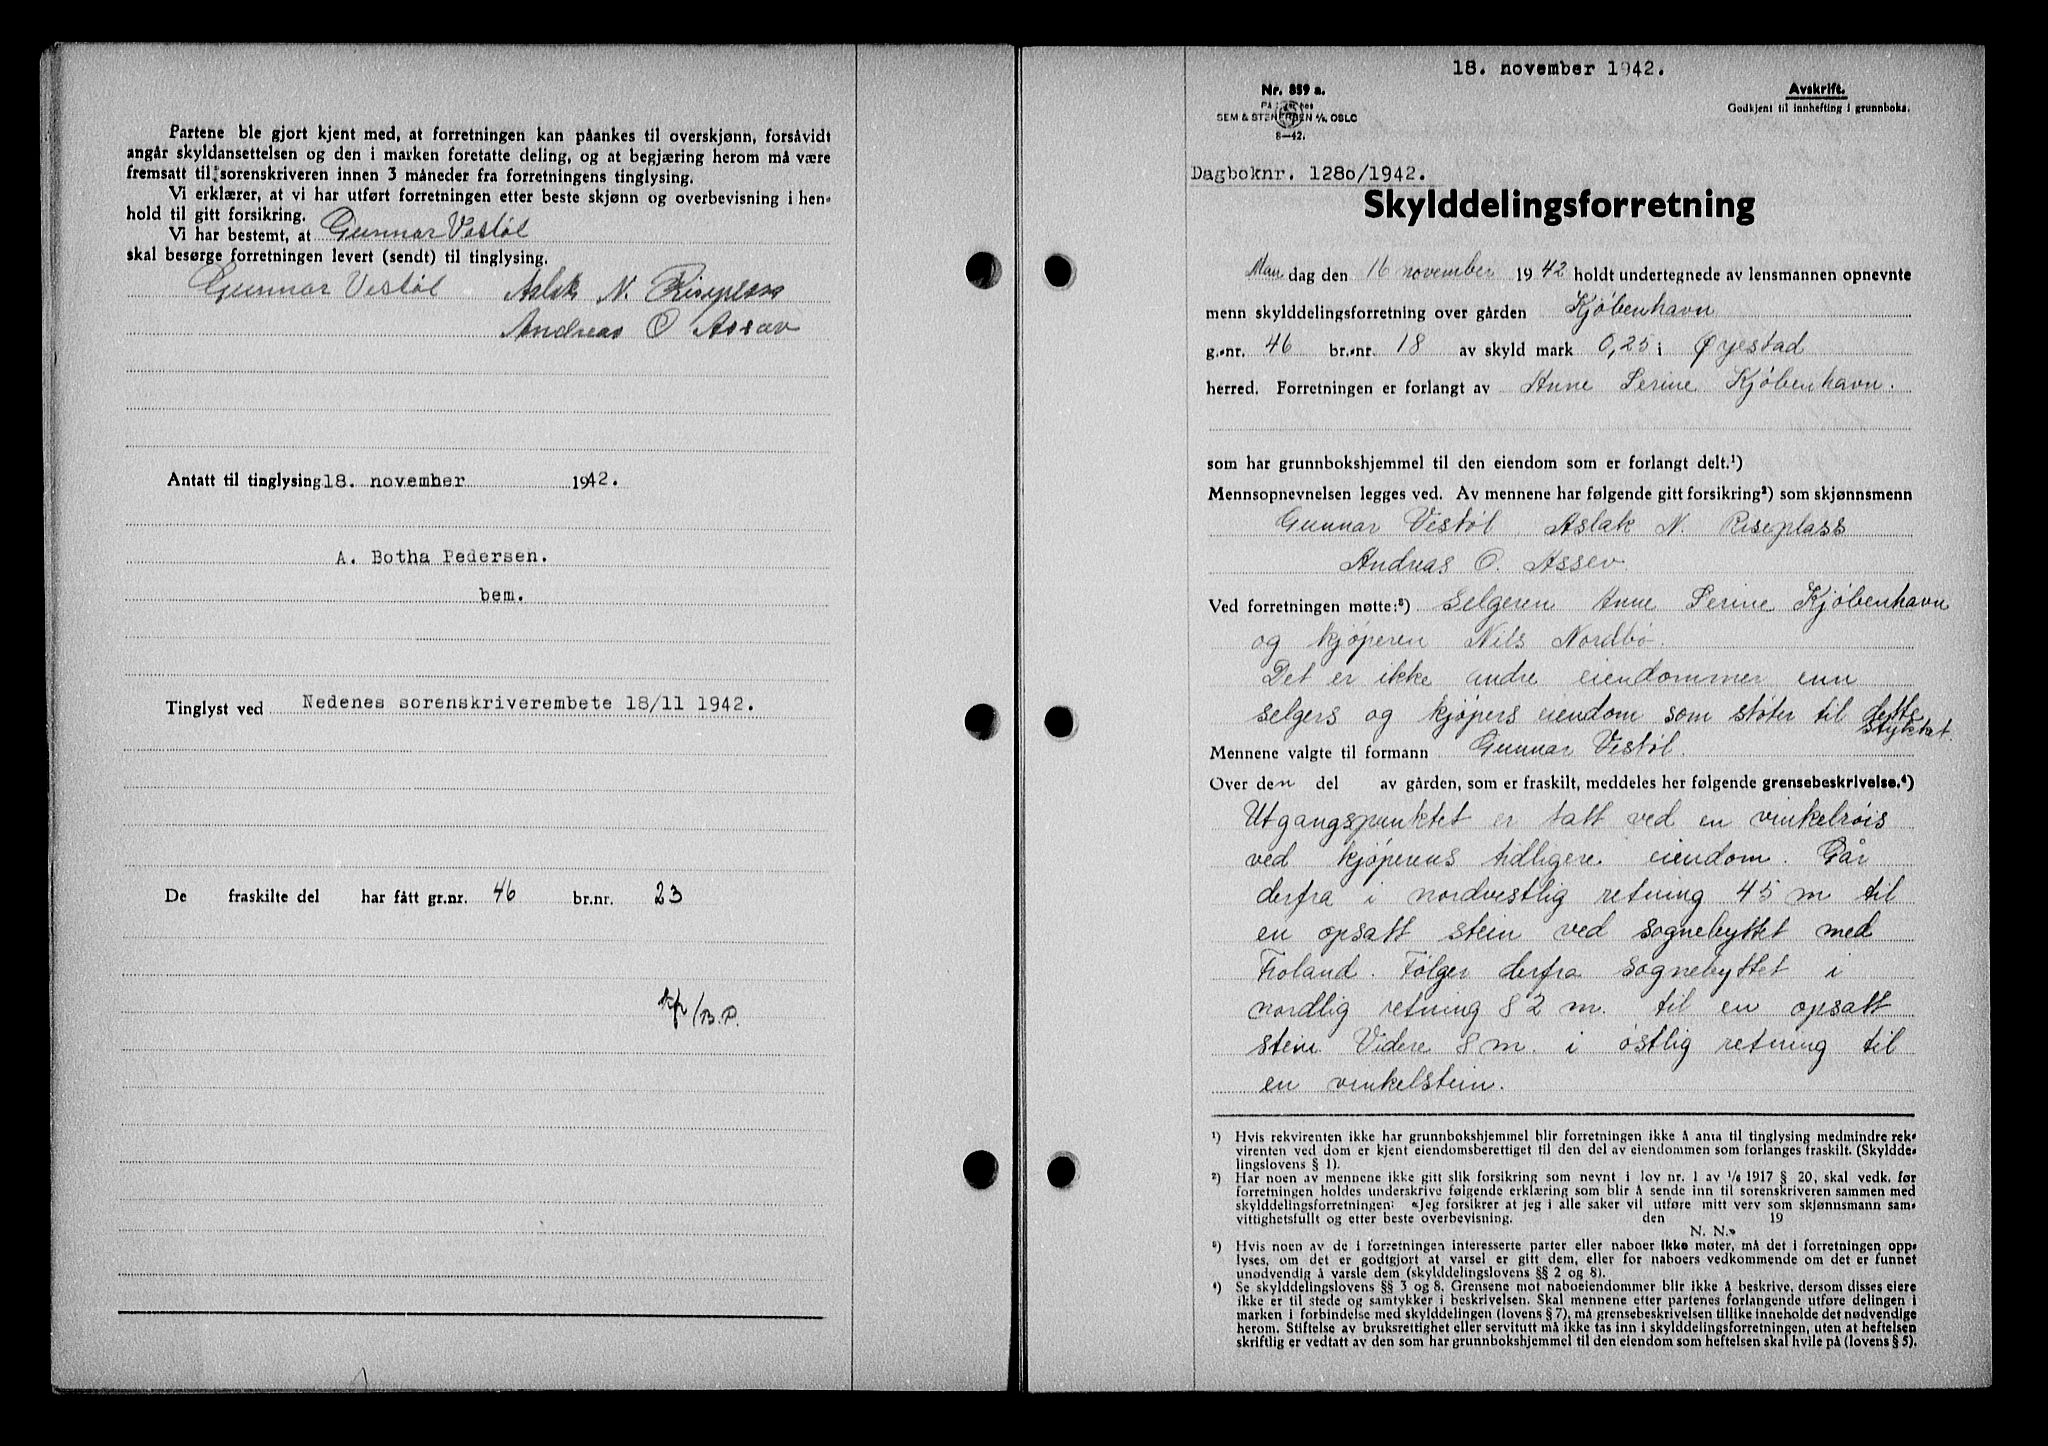 Partene ble gjort kjent med, at forretningen kan påankes til overskjønn, forsåvidt
angår skyldansettelsen og den i marken foretatte deling, og at begjæring herom må være
fremsatt til sorenskriveren innen 3 måneder fra forretningens tinglysing.
Vi erklærer, at vi har utført forretningen etter beste skjønn og overbevisning i hen-
hold til gitt forsikring.
Vi har bestemt, at Gunnar Vestøl
skal besørge forretningen levert (sendt) til tinglysing.
Gunnar Vestøl Aslak N. Riseplass
Andreas O Assev
Antatt til tinglysing 18. november 1942.
A. Botha Pedersen.
bem.
Tinglyst ved Nedenes sorenskriverembete 18/11 1942.
De fraskilte del har fått gr.nr. 46 br.nr. 23
/B.P.
18. november 1942.
Nr. 859 a.
På lager hos
SEM & STENERSEN A/S, OSLO
8—42.
Avskrift.
Godkjent til innhefting i grunnboka.
Dagboknr. 1280/1942.
Skylddelingsforretning
Man dag den 16 november 1942 holdt undertegnede av lensmannen opnevnte
menn skylddelingsforretning over gården Kjøbenhavn
g.-nr. 46 br.-nr. 18 av skyld mark 0,25 i Øyestad
herred. Forretningen er forlangt av Anne Serine Kjøbenhavn.
som har grunnbokshjemmel til den eiendom som er forlangt delt.¹)
Mennsopnevnelsen legges ved. Av mennene har følgende gitt forsikring²) som skjønnsmenn
Gunnar Vestøl, Aslak N. Riseplass
Andreas O. Assev.
Ved forretningen møtte:³) Selgeren Anne Serine Kjøbenhavn
og kjøperen Nils Nordbø.
Det er ikke andre eiendommer enn
selgers og kjøpers eiendom som støter til dette
stykket.
Mennene valgte til formann Gunnar Vestøl.
Over den del av gården, som er fraskilt, meddeles her følgende grensebeskrivelse.⁴)
Utgangspunktet er tatt ved en vinkelrøis
ved kjøperens tidligere eiendom. Går
derfra i nordvestlig retning 45 m til
en opsatt stein ved sognebyttet med
Froland. Følger derfra sognebyttet i
nordlig retning 82 m. til en opsatt
stein. Videre 8 m. i østlig retning til
en vinkelstein.
¹) Hvis rekvirenten ikke har grunnbokshjemmel blir forretningen ikke å anta til tinglysing medmindre rek-
virenten ved dom er kjent eiendomsberettiget til den del av eiendommen som forlanges fraskilt. (Skyldde-
lingslovens § 1).
²) Har noen av mennene ikke gitt slik forsikring som nevnt i lov nr. 1 av 1/6 1917 § 20, skal vedk. før
forretningen holdes underskrive følgende erklæring som blir å sende inn til sorenskriveren sammen med
skylddelingsforretningen: «Jeg forsikrer at jeg i alle saker vil utføre mitt verv som skjønnsmann sam-
vittighetsfullt og etter beste overbevisning. den 19
N. N.»
³) Hvis noen av de i forretningen interesserte parter eller naboer ikke møter, må det i forretningen opp-
lyses, om det er godtgjort at varsel er gitt dem, eller for naboers vedkommende om det er funnet
unødvendig å varsle dem (skylddelingslovens §§ 2 og 8).
⁴) Se skylddelingslovens §§ 3 og 8. Grensene mot naboeiendommer blir ikke å beskrive, dersom disses eiere
ikke er til stede og samtykker i beskrivelsen. Skal mennene etter partenes forlangende utføre delingen i
marken i forbindelse med skylddelingen (lovens § 7), må grensebeskrivelsen tillike inneholde det nødvendige
herom. Stiftelse av bruksrettighet eller servitutt må ikke tas inn i skylddelingsforretningen, uten at heftelsen
skriftlig er vedtatt av den som har grunnbokshjemmel til den eiendom som heftelsen skal hvile på (lovens § 5).